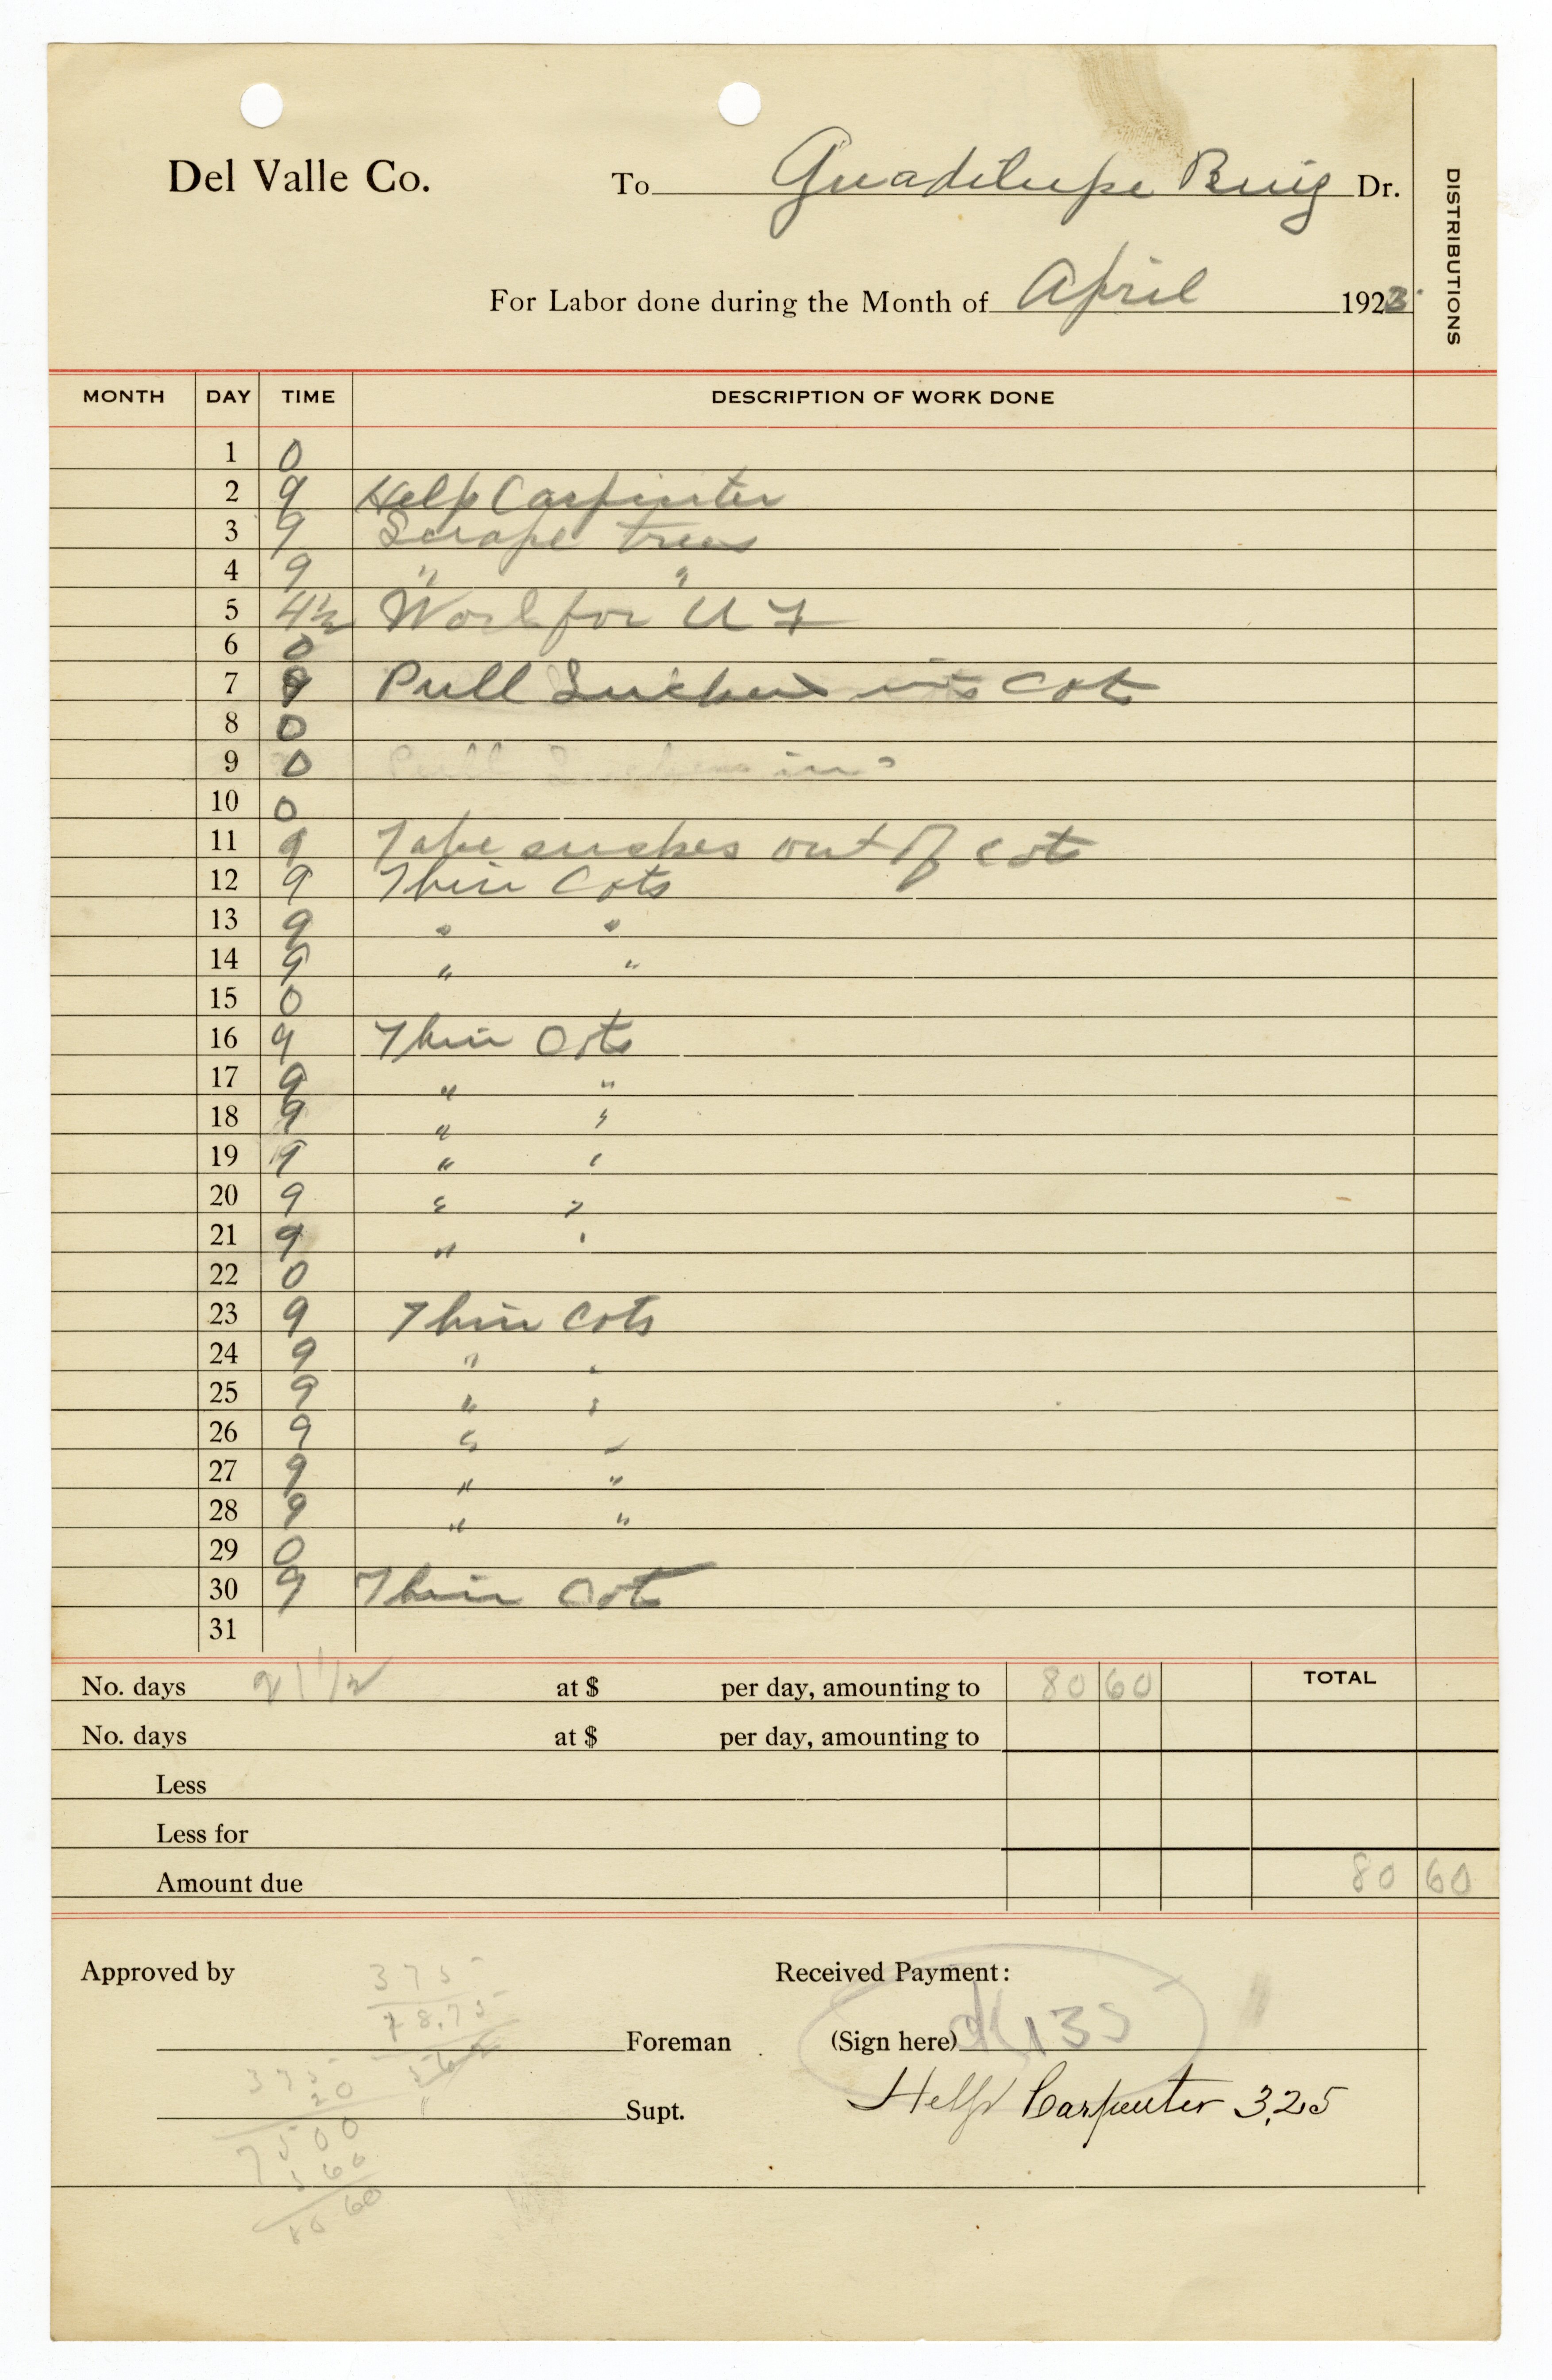 Del Valle Co. To Guadilupe Ruig Dr.
DISTRIBUTIONS
For Labor done during the Month of April 1923
MONTH DAY TIME DESCRIPTION OF WORK DONE
1 0
2 9 Help Carpinter
3 9 Scrape trees
4 9 " "
5 4½ Work for U 7
6 0
7 9 Pull Suckers in Cots
8 0
9 0 Pull Suckers in
10 0
11 9 Take suckes out of cots
12 9 Thin Cots
13 9 " "
14 9 " "
15 0
16 9 Thin Cots
17 9 " "
18 9 " "
19 9 " "
20 9 " "
21 9 " "
22 0
23 9 Thin Cots
24 9 " "
25 9 " "
26 9 " "
27 9 " "
28 9 " "
29 0
30 9 Thin Cots
31
No. days 21 1/2 at $ per day, amounting to 80 60 TOTAL
No. days at $ per day, amounting to
Less
Less for
Amount due 80 60
Approved by 375 Received Payment:
78.75
Foreman (Sign here) 135
375
20
Supt. Help Carpenter 3.25
7500
560
80 60